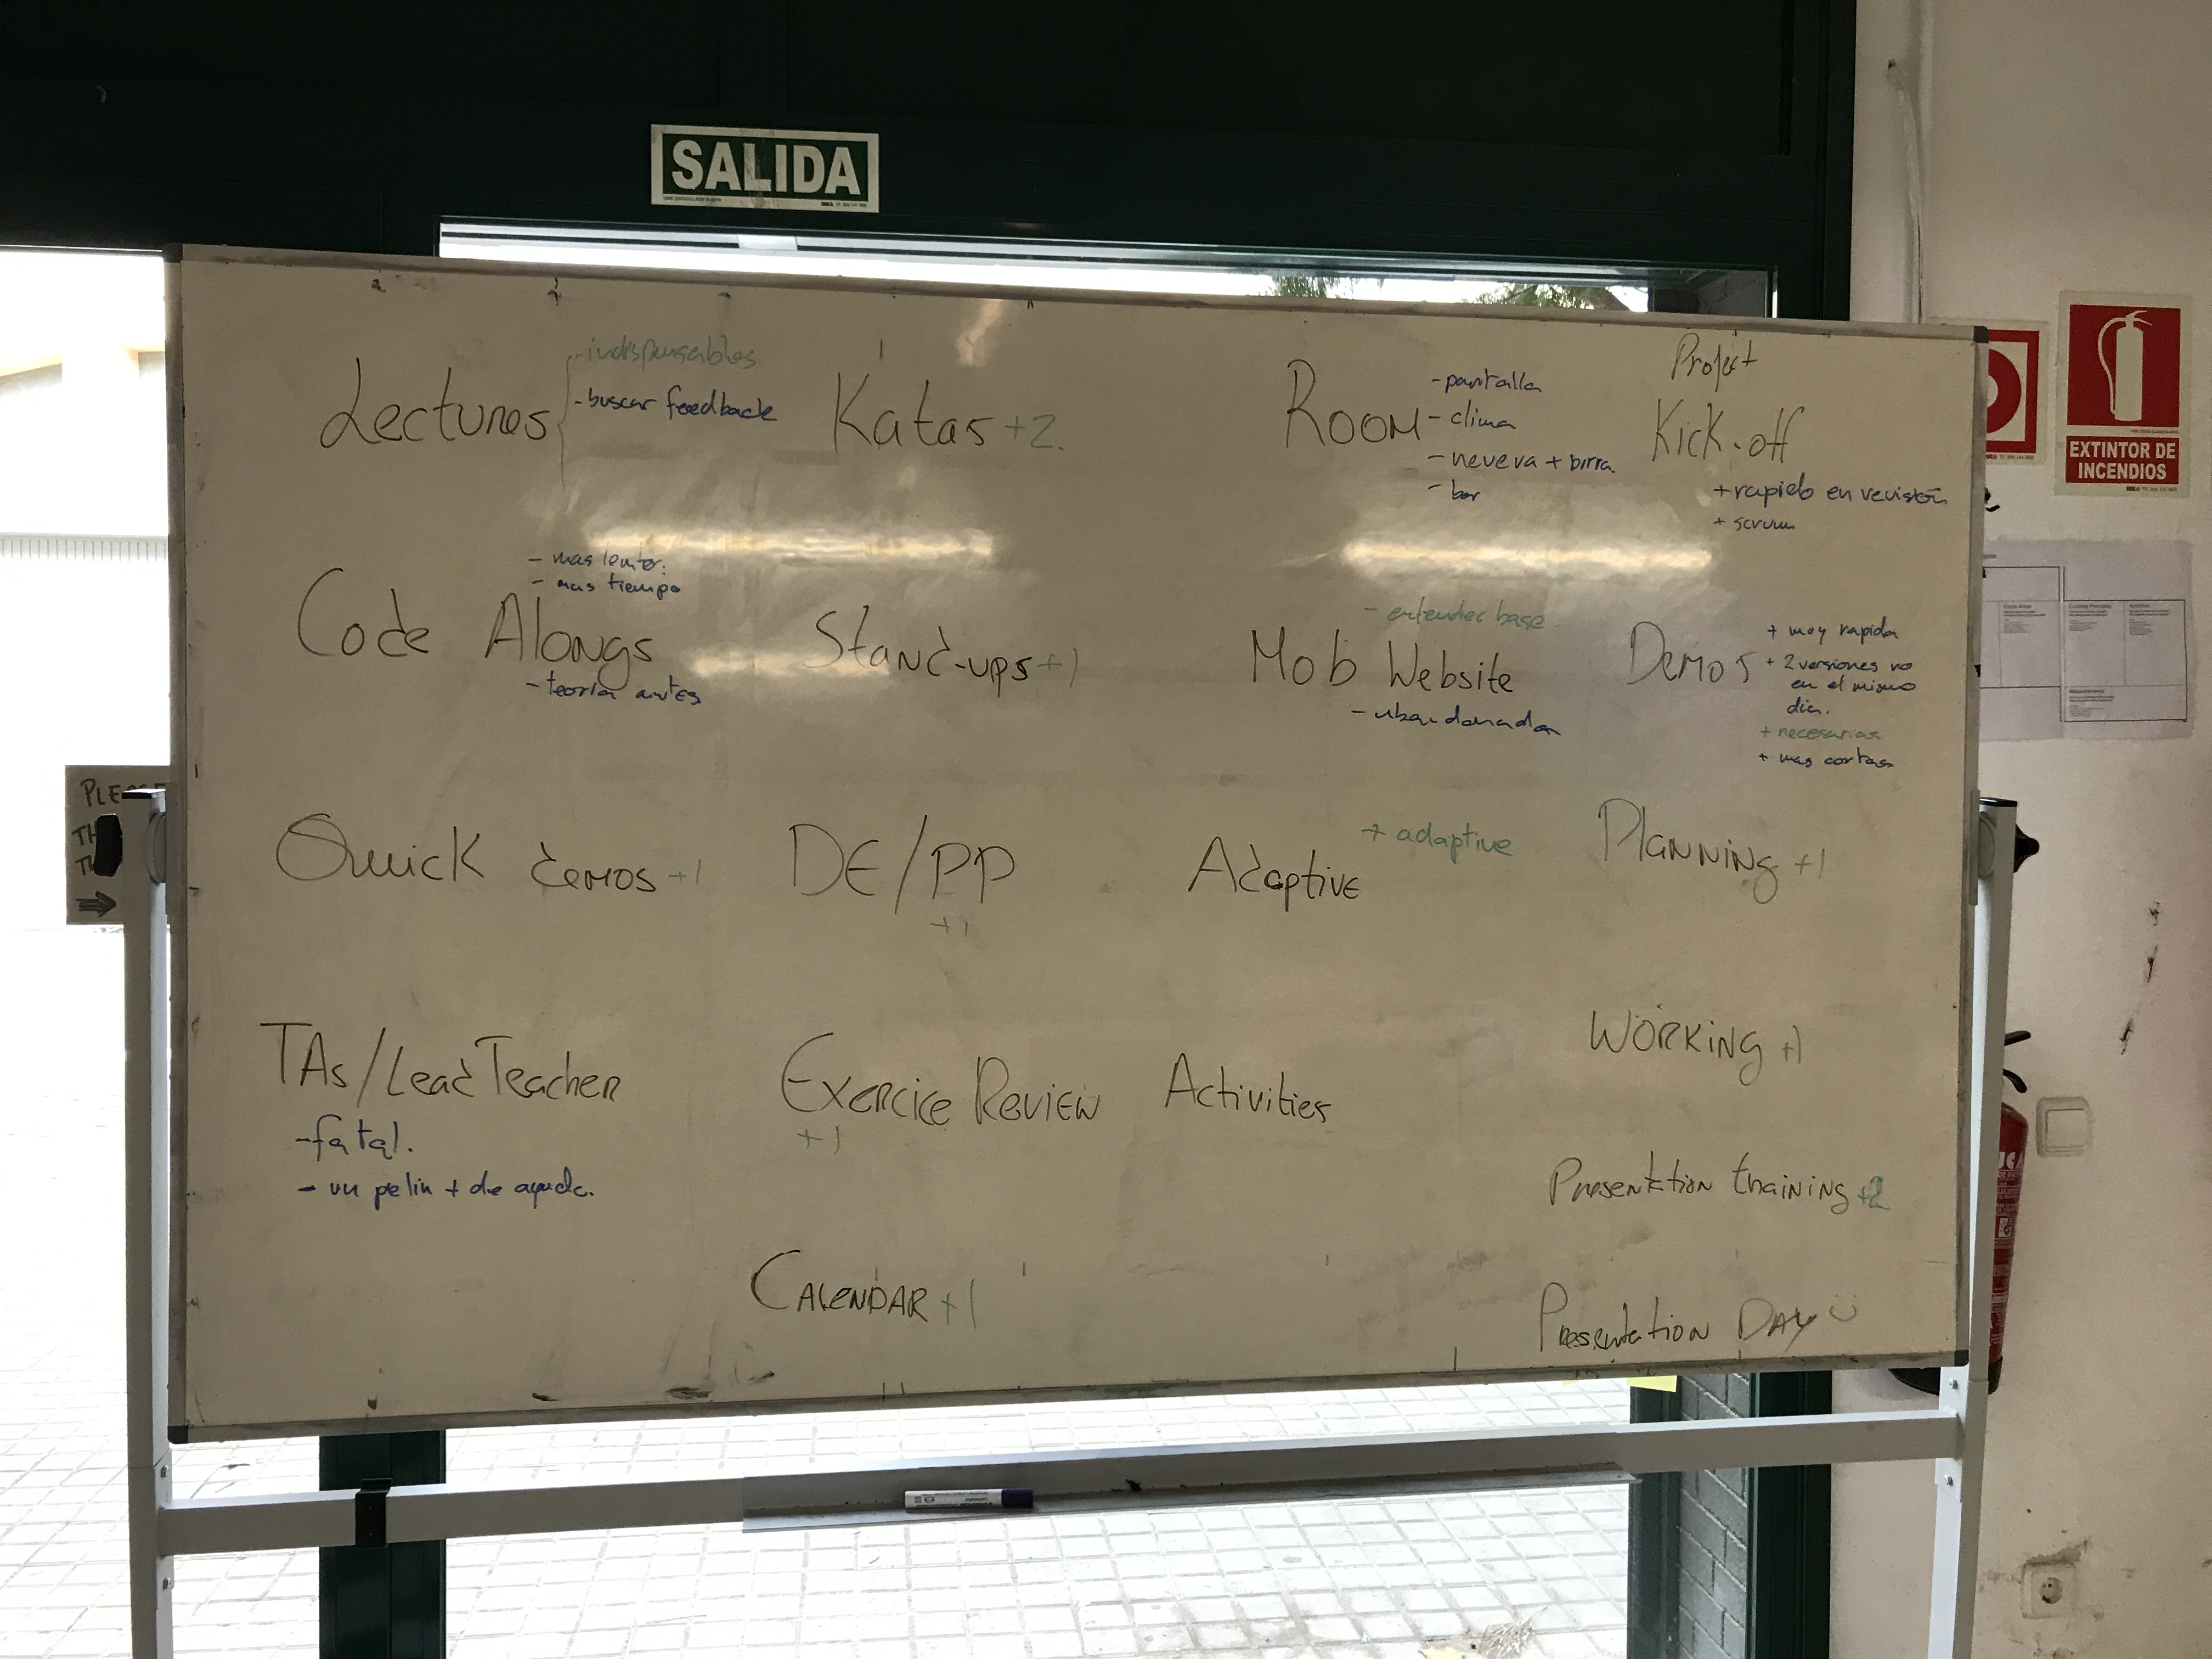 SALIDA
EXTINTOR DE
INCENDIOS
Lectures
- indispensables
- buscar feedback
Katas +2
Room
- pantalla
- clima
- nevera + birra
- bar
Project
Kick-off
+ rapido en revisión
+ scrum
- mas lento.
- mas tiempo
Code Alongs
- teoria antes
Stand-ups +1
- entender base
Mob Website
- abandonada
Demos
+ muy rapida
+ 2 versiones no
en el mismo
dia.
+ necesarias
+ mas cortas
Quick demos +1
DE/PP
+1
Adaptive
+ adaptive
Planning +1
TAs/Lead Teacher
- fatal.
- un pelin + de ayuda.
Exercice Review
+1
Activities
Working +1
Presentation training +2
Calendar +1
Presentation Day
PLE
TH